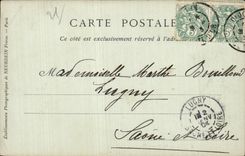 21
CARTE POSTALE
Ce côté est exclusivement réservé à l'adresse
Mademoiselle Marthe Bouillond
Lugny
Saone et Loire
LUGNY
Etablissements Photographiques de NEURDEIN Frères. — Paris